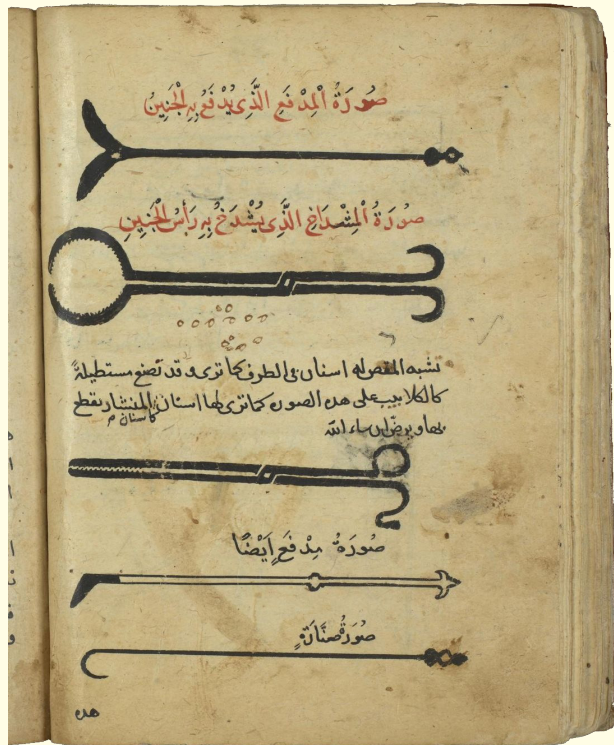 صُورَةُ الْمِدْفَعِ الَّذِي يُدْفَعُ بِهِ الْجَنِينُ
صُورَةُ الْمِشْدَاخِ الَّذِي يُشْدَخُ بِهِ رَأْسُ الْجَنِينِ
تشبه المقص له اسنان فى الطرف كما ترى وقد تصنع مستطيلةً
كالكلاليب على هذه الصوره كما ترى لها اسنان المنشار تقطع
كاسنان
بها ويرض ان ساء الله
صُورَةُ مِدْفَعٍ اَيْضًا
صُورَةُ صنَّارَةٍ
هذه